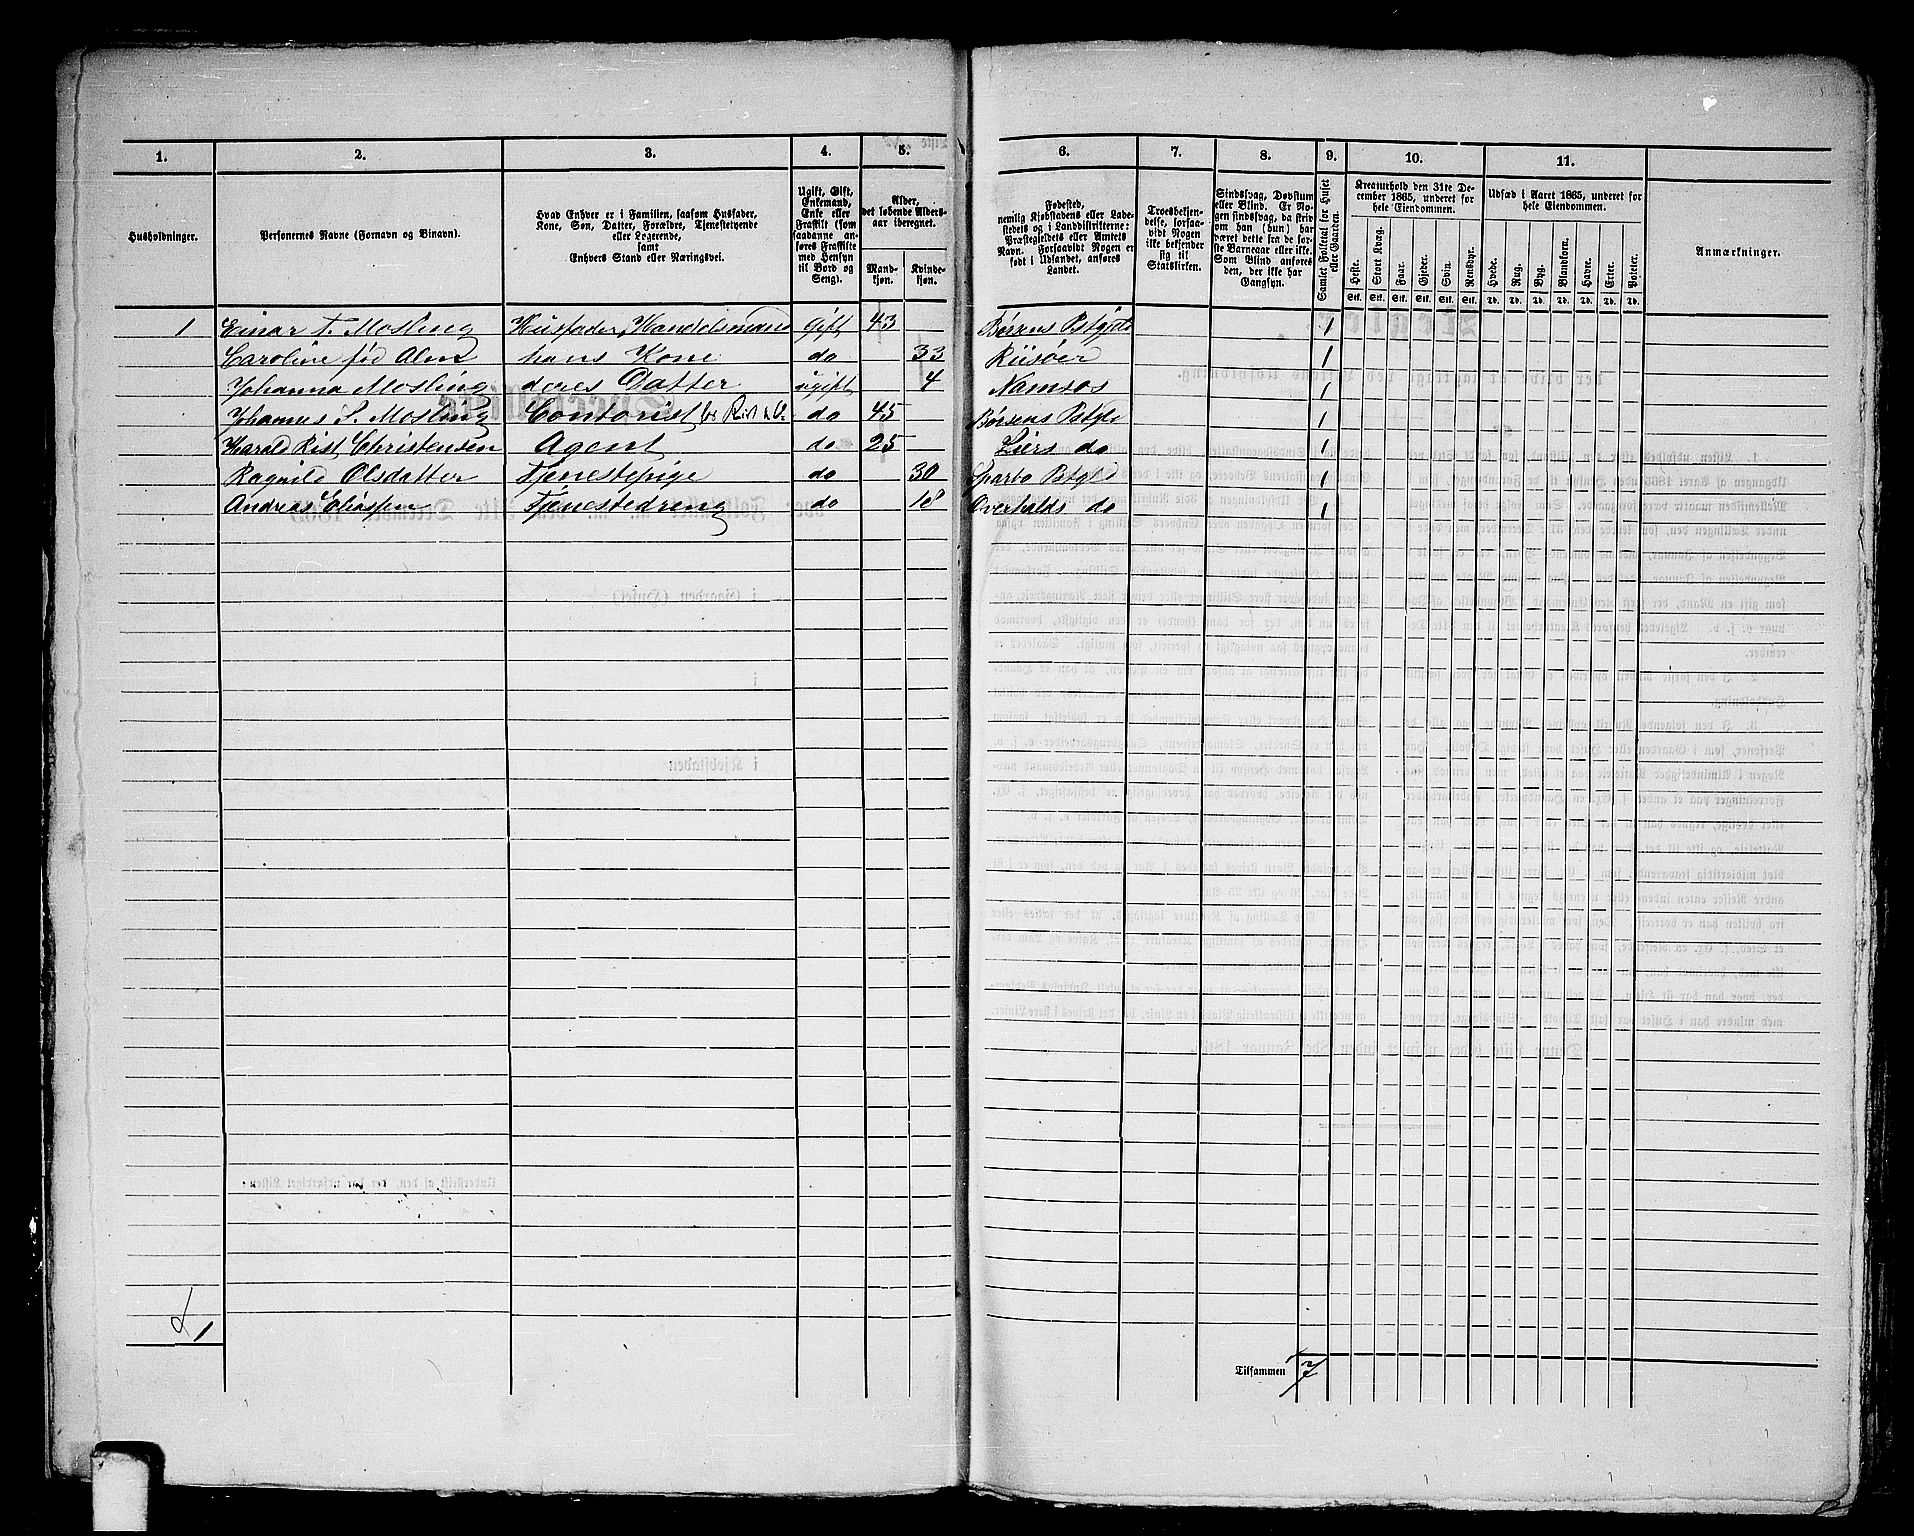 1. 2. 3. 4. 5. 6. 7. 8. 9. 10. 11.
Husholdninger.
Personernes Navne (Fornavn og Binavn).
Hvad Enhver er i Familien, saasom Husfader,
Kone, Søn, Datter, Forældre, Tjenestetyende
eller Logerende,
samt
Enhvers Stand eller Næringsvei.
Ugift, Gift,
Enkemand,
Enke eller
Fraskilt (som
saadanne an-
føres Fraskilte
med Hensyn
til Bord og
Seng).
Alder,
det løbende Alders-
aar iberegnet.
Mand-
kjøn.
Kvinde-
kjøn.
Fødested,
nemlig Kjøbstadens eller Lade-
stedets og i Landdistrikterne:
Præstegjeldets eller Amtets
Navn. Forsaavidt Nogen er
født i Udlandet, anføres
Landet.
Troesbekjen-
delse, forsaa-
vidt Nogen
ikke bekjender
sig til
Statskirken.
Sindssvag, Døvstum
eller Blind. Er No-
gen sindssvag, da skriv
om han (hun) har
været dette fra de for-
ste Barneaar eller ikke.
Som Blind anføres
den, der ikke har
Gangsyn.
Samlet Folketal for Huset
eller Gaarden.
Kreaturhold den 31te De-
cember 1865, underet for
hele Eiendommen.
Heste. Stort Kvæg. Faar. Gjeder. Svin. Rensdyr.
Stk. Stk. Stk. Stk. Stk. Stk.
Udsæd i Aaret 1865, underet for
hele Eiendommen.
Hvede. Rug. Byg. Blandkorn. Havre. Erter. Poteter.
Td. Td. Td. Td. Td. Td. Td.
Anmærkninger.
1 Einar T. Mosling Husfader, Handelsmand Gift 43 Børsens Pstgjeld 1
Caroline fød Alm hans Kone do 33 Riisøer 1
Johanna Mosling deres Datter ugift 4 Namsos 1
Johannes S. Mosling Contorist do 45 Børsens Pstgld 1
Harald Rist Christensen Agent do 25 Liers do 1
Ragnild Olsdatter Tjenestepige do 30 Sparbo Pstgld 1
Andreas Eliassen Tjenestedreng do 18 Overhalds do 1
1
Tilsammen 7